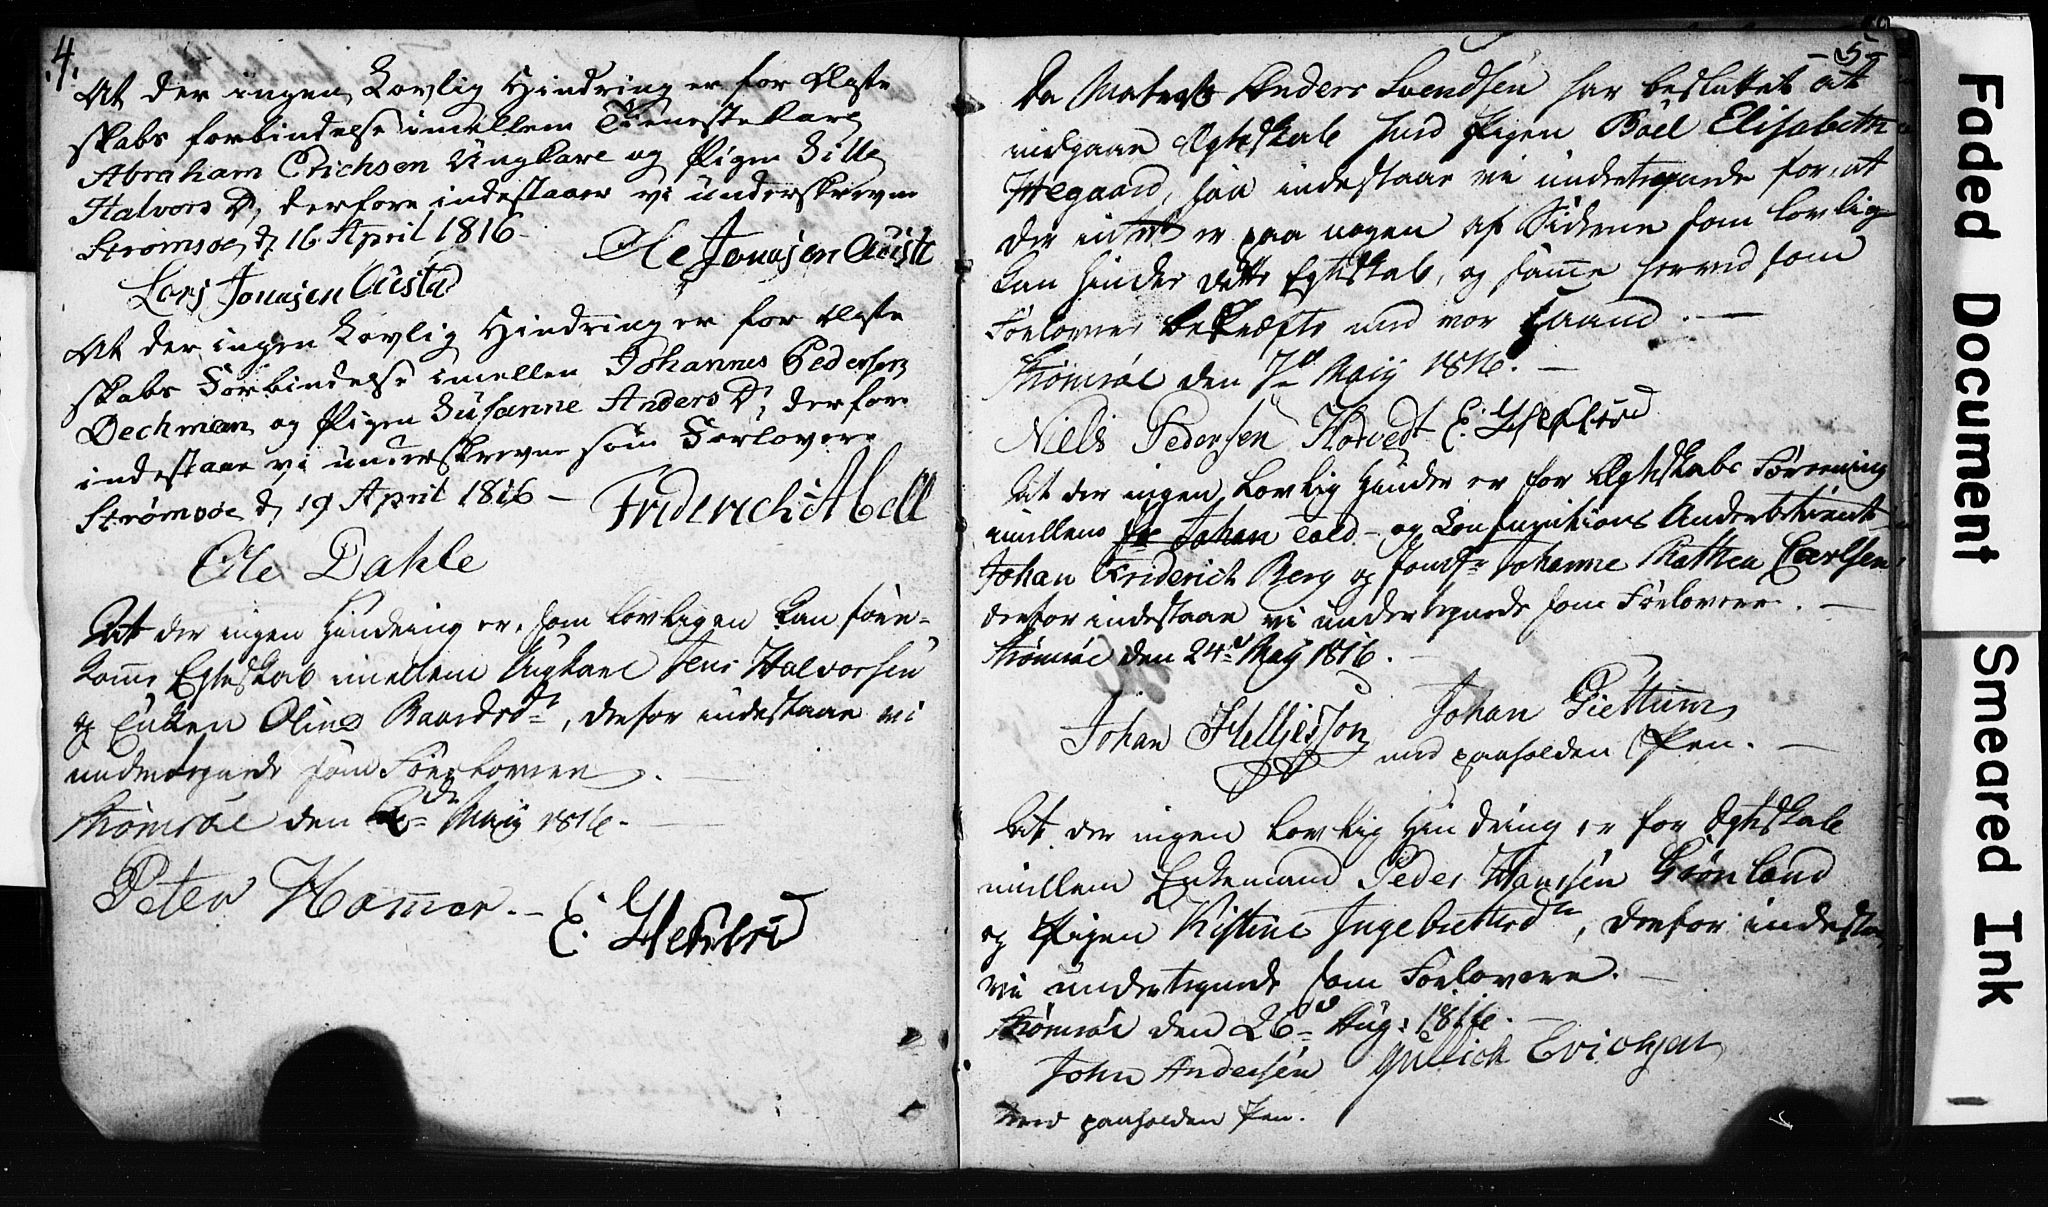 .4.
At der ingen Lovlig Hindring er for Ægte
skabs forbindelse imellem Tieneste Karl
Abraham Erichsen Ungkarl og Pigen Sille
Halvors D, derfore indestaaer vi underskrevne
Strømsøe d, 16 April 1816
Ole Jonasen Austa
Lars Jonasen Austad
At der ingen Lovlig Hindring er for Ægte
skabs Forbindelse imellem Johannes Pedersen
Dechman og Pigen Susanne Anders D, derfor
indestaae vi underskrevne som Forlovere
Strømsøe d, 19 April 1816 —
Friderich Abell
Ole Dahle
At der ingen Hindring er, som lovligen kan fore-
komme Egteskab imellem Ungkarl Jens Halvorsen
og Enken Oline Baardsdtr, derfor indestaae vi
undertegnede som Forlovere.
Strømsøe den Maij 1816.
Peter Hammer. —
E.
-5-
Da Matros Anders Svendsen har besluttet at
indgaae Ægteskab med Pigen Boel Elisabeth
Hegaard, saa indestaae vi undertegnede for, at
der intet er paa nogen af Siderne som lovlig
kan hindre dette Egteskab, og samme herved som
Forlovere bekræfte med vor Haand. —
Strømsøe den 7d Maij 1816. —
Niels Pedersen Horvedt E.
At der ingen Lovlig Hinder er for Ægteskabs Forening
imellem Johan Told- og Consumtions Underbetient
Johan Friderich Berg og Jomfr Johanne Mathea Carlsen,
derfor indestaae vi undertegnede som Forlovere. —
Strømsøe den 24d Maij 1816.
Johan Helljesson Johan Giettum
med paaholden Pen. —
At der ingen Lovlig Hindring er for Egteskab
imellem Enkemand Peder Hansen Grønland
og Pigen Kistine Ingebrettsdtr, derfor indesta
vi undertegnede som Forlovere. —
Strømsøe den 26d Aug: 1816.
John Andersen Gullich Erichsen
med paaholden Pen.
Faded Document
Smeared Ink